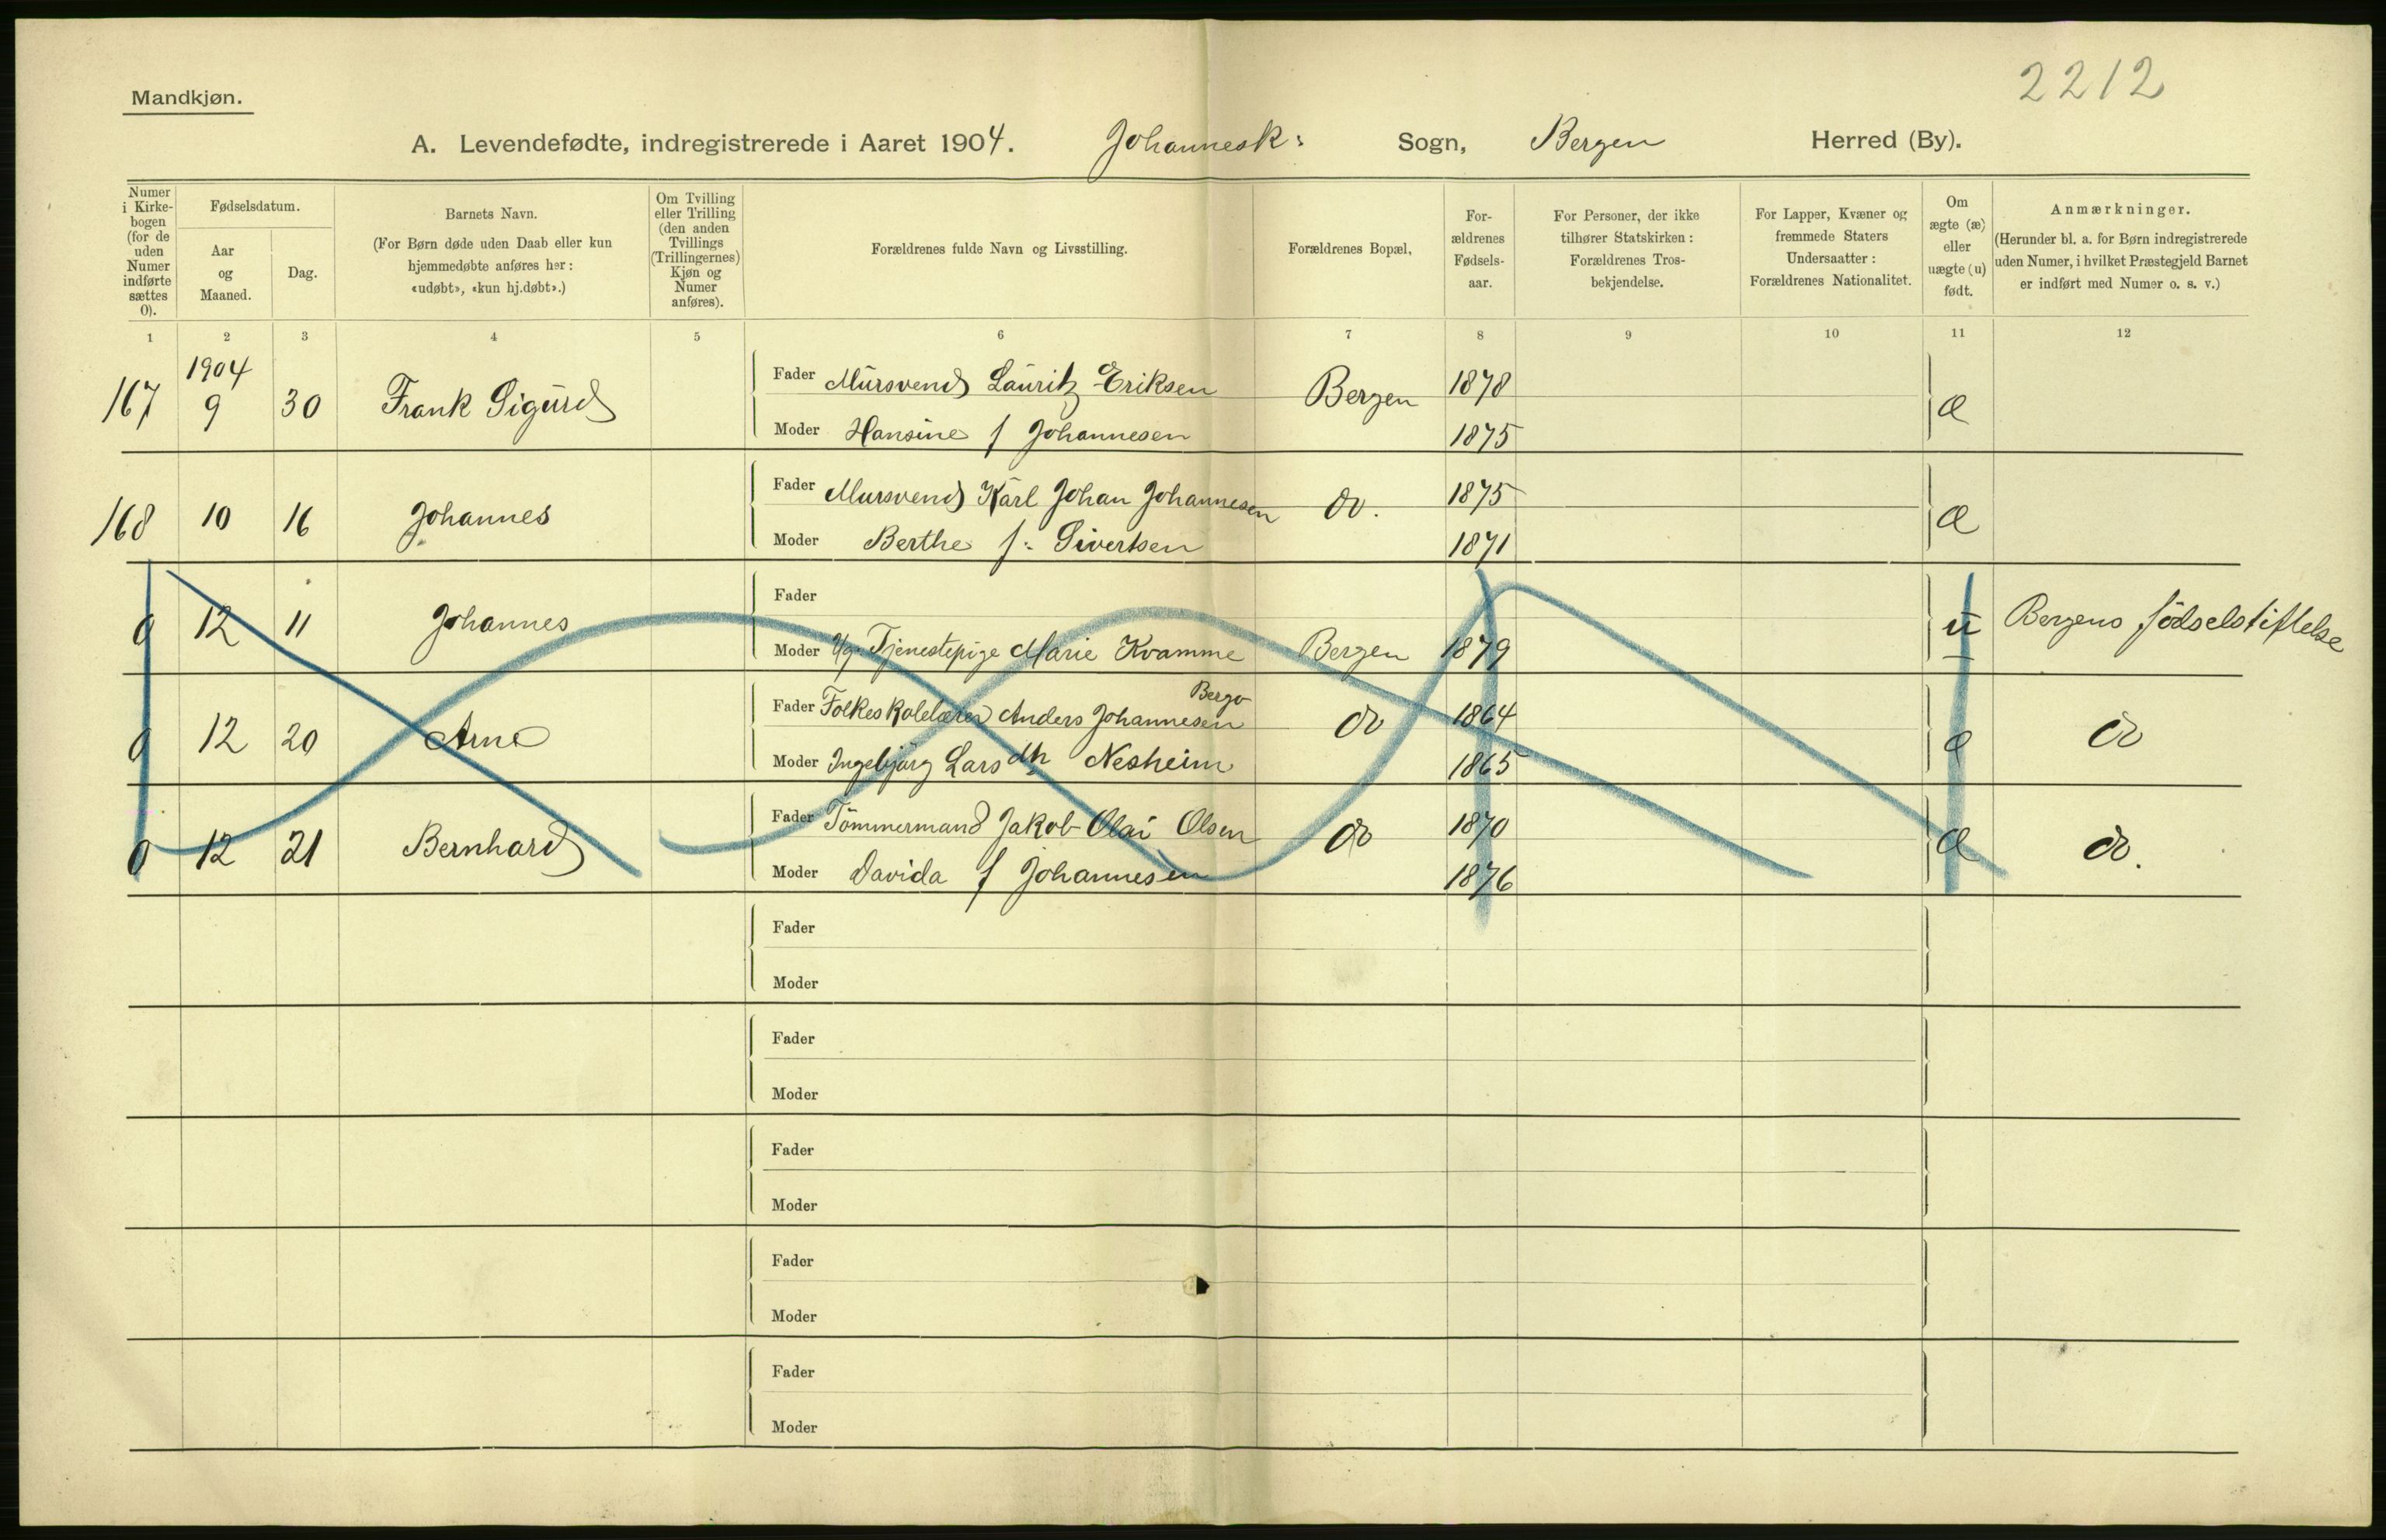 2212
Mandkjøn.
A. Levendefødte, indregistrerede i Aaret 1904. Johannesk: Sogn, Bergen Herred (By).
Numer i Kirkebogen (for de uden Numer indførte sættes 0).
Fødselsdatum.
Aar og Maaned.
Dag.
Barnets Navn.
(For Børn døde uden Daab eller kun hjemmedøbte anføres her: «udøbt», «kun hj.døbt».)
Om Tvilling eller Trilling (den anden Tvillings (Trillingernes) Kjøn og Numer anføres).
Forældrenes fulde Navn og Livsstilling.
Forældrenes Bopæl,
For-ældrenes Fødsels-aar.
For Personer, der ikke tilhører Statskirken: Forældrenes Tros-bekjendelse.
For Lapper, Kvæner og fremmede Staters Undersaatter: Forældrenes Nationalitet.
Om ægte (æ) eller uægte (u) født.
Anmærkninger.
(Herunder bl. a. for Børn indregistrerede uden Numer, i hvilket Præstegjeld Barnet er indført med Numer o. s. v.)
1 2 3 4 5 6 7 8 9 10 11 12
1904
167 9 30 Frank Sigurd Fader Mursvend Lauritz Eriksen Bergen 1878 Æ
Moder Hansine f Johannesen 1875
168 10 16 Johannes Fader Mursvend Karl Johan Johannesen do. 1875 Æ
Moder Berthe f: Sivertsen 1871
0 12 11 Johannes Fader u Bergens födselstiftelse
Moder Ug. Tjenestepige Marie Kvamme Bergen 1879
0 12 20 Arne Fader Folkeskolelærer Anders Johannesen Bergo do 1864 æ do
Moder Ingebjørg Larsdtr Nesheim 1865
0 12 21 Bernhard Fader Tömmermand Jakob Olai Olsen do 1870 Æ do.
Moder Davida f Johannesen 1876
Fader
Moder
Fader
Moder
Fader
Moder
Fader
Moder
Fader
Moder